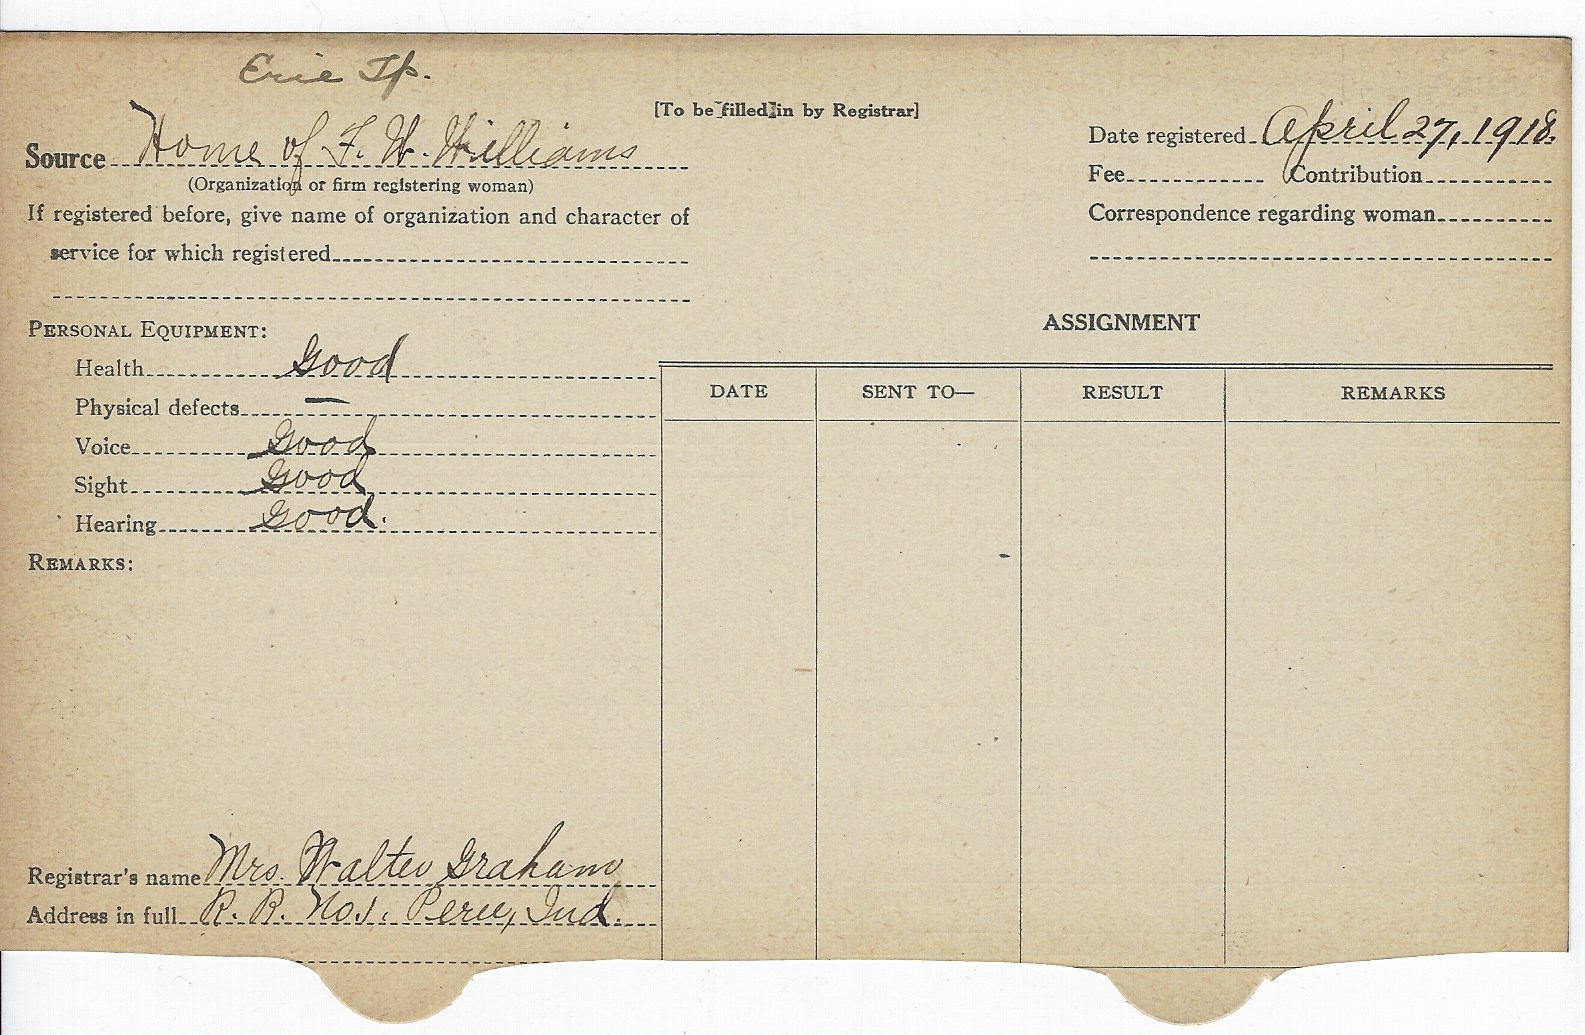 Erie Tp.
[To be filled in by Registrar]
Source Home of F. W. Williams
(Organization or firm registering woman)
If registered before, give name of organization and character of
service for which registered
Date registered April 27, 1918.
Fee Contribution
Correspondence regarding woman
PERSONAL EQUIPMENT:
Health Good
Physical defects —
Voice Good
Sight Good
Hearing Good.
REMARKS:
Registrar's name Mrs. Walter Graham
Address in full R. R. No. 1. Peru, Ind.
ASSIGNMENT
DATE SENT TO— RESULT REMARKS